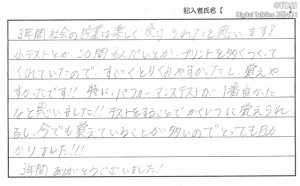 記入者氏名【
3年間社会の授業は楽しく乗りきれたと思います!
小テストとか、20問そんだいとか、プリントを多くつくって
くれていたので、すごくとりくみやすかったし、覚えや
すかったです!! 特にパフォーマンステストが1番良かった
なと思いました!! テストをすることでかくじつに覚えられ
るし、今でも覚えていることが多いのでとっても助
かりました!!!
3年間ありがとうございました!